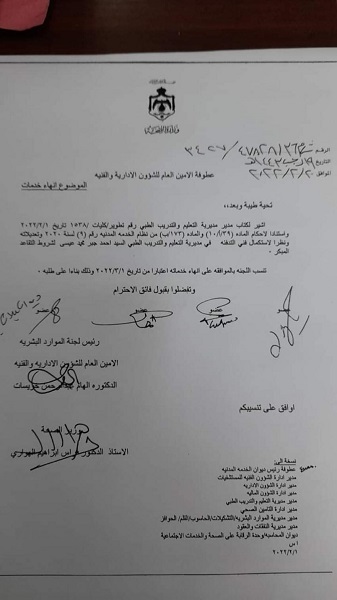 وزارة الصحة
الرقم
التاريخ
الموافق
عطوفة الامين العام للشؤون الادارية والفنيه
الموضوع انهاء خدمات
تحية طيبة وبعد،،،
اشير لكتاب مدير مديرية التعليم والتدريب الطبي رقم تطوير/كليات /١٥٣٨ تاريخ ٢٠٢٢/٢/١
واستنادا لاحكام المادة (١٠/٣٩) والماده (١٧٣/ب) من نظام الخدمه المدنيه رقم (٩) لسنة ٢٠٢٠ وتعديلاته
ونظرا لاستكمال فني التدفئه في مديرية التعليم والتدريب الطبي السيد احمد جبر محمد عيسى لشروط التقاعد
المبكر .
تنسب اللجنه بالموافقه على انهاء خدماته اعتبارا من تاريخ ٢٠٢٢/٣/١ وذلك بناءا على طلبه .
وتفضلوا بقبول فائق الاحترام
عضو عضو عضو عضو
رئيس لجنة الموارد البشريه
الامين العام للشؤون الاداريه والفنيه
الدكتوره الهام خريسات
اوافق على تنسيبكم
وزير الصحة
الاستاذ الدكتور فراس ابراهيم الهواري
نسخة الى:
عطوفة رئيس ديوان الخدمه المدنيه
مدير ادارة الشؤون الفنيه للمستشفيات
مدير ادارة الشؤون الاداريه
مدير ادارة الشؤون الماليه
مدير مديرية التعليم والتدريب الطبي
مدير ادارة التامين الصحي
مدير مديرية الموارد البشريه/التشكيلات/الحاسوب/القلم/ الحوافز
مدير مديرية النفقات والعقود
ديوان المحاسبه/وحدة الرقابة على الصحة والخدمات الاجتماعية
ا س
٢٠٢٢/٢/١